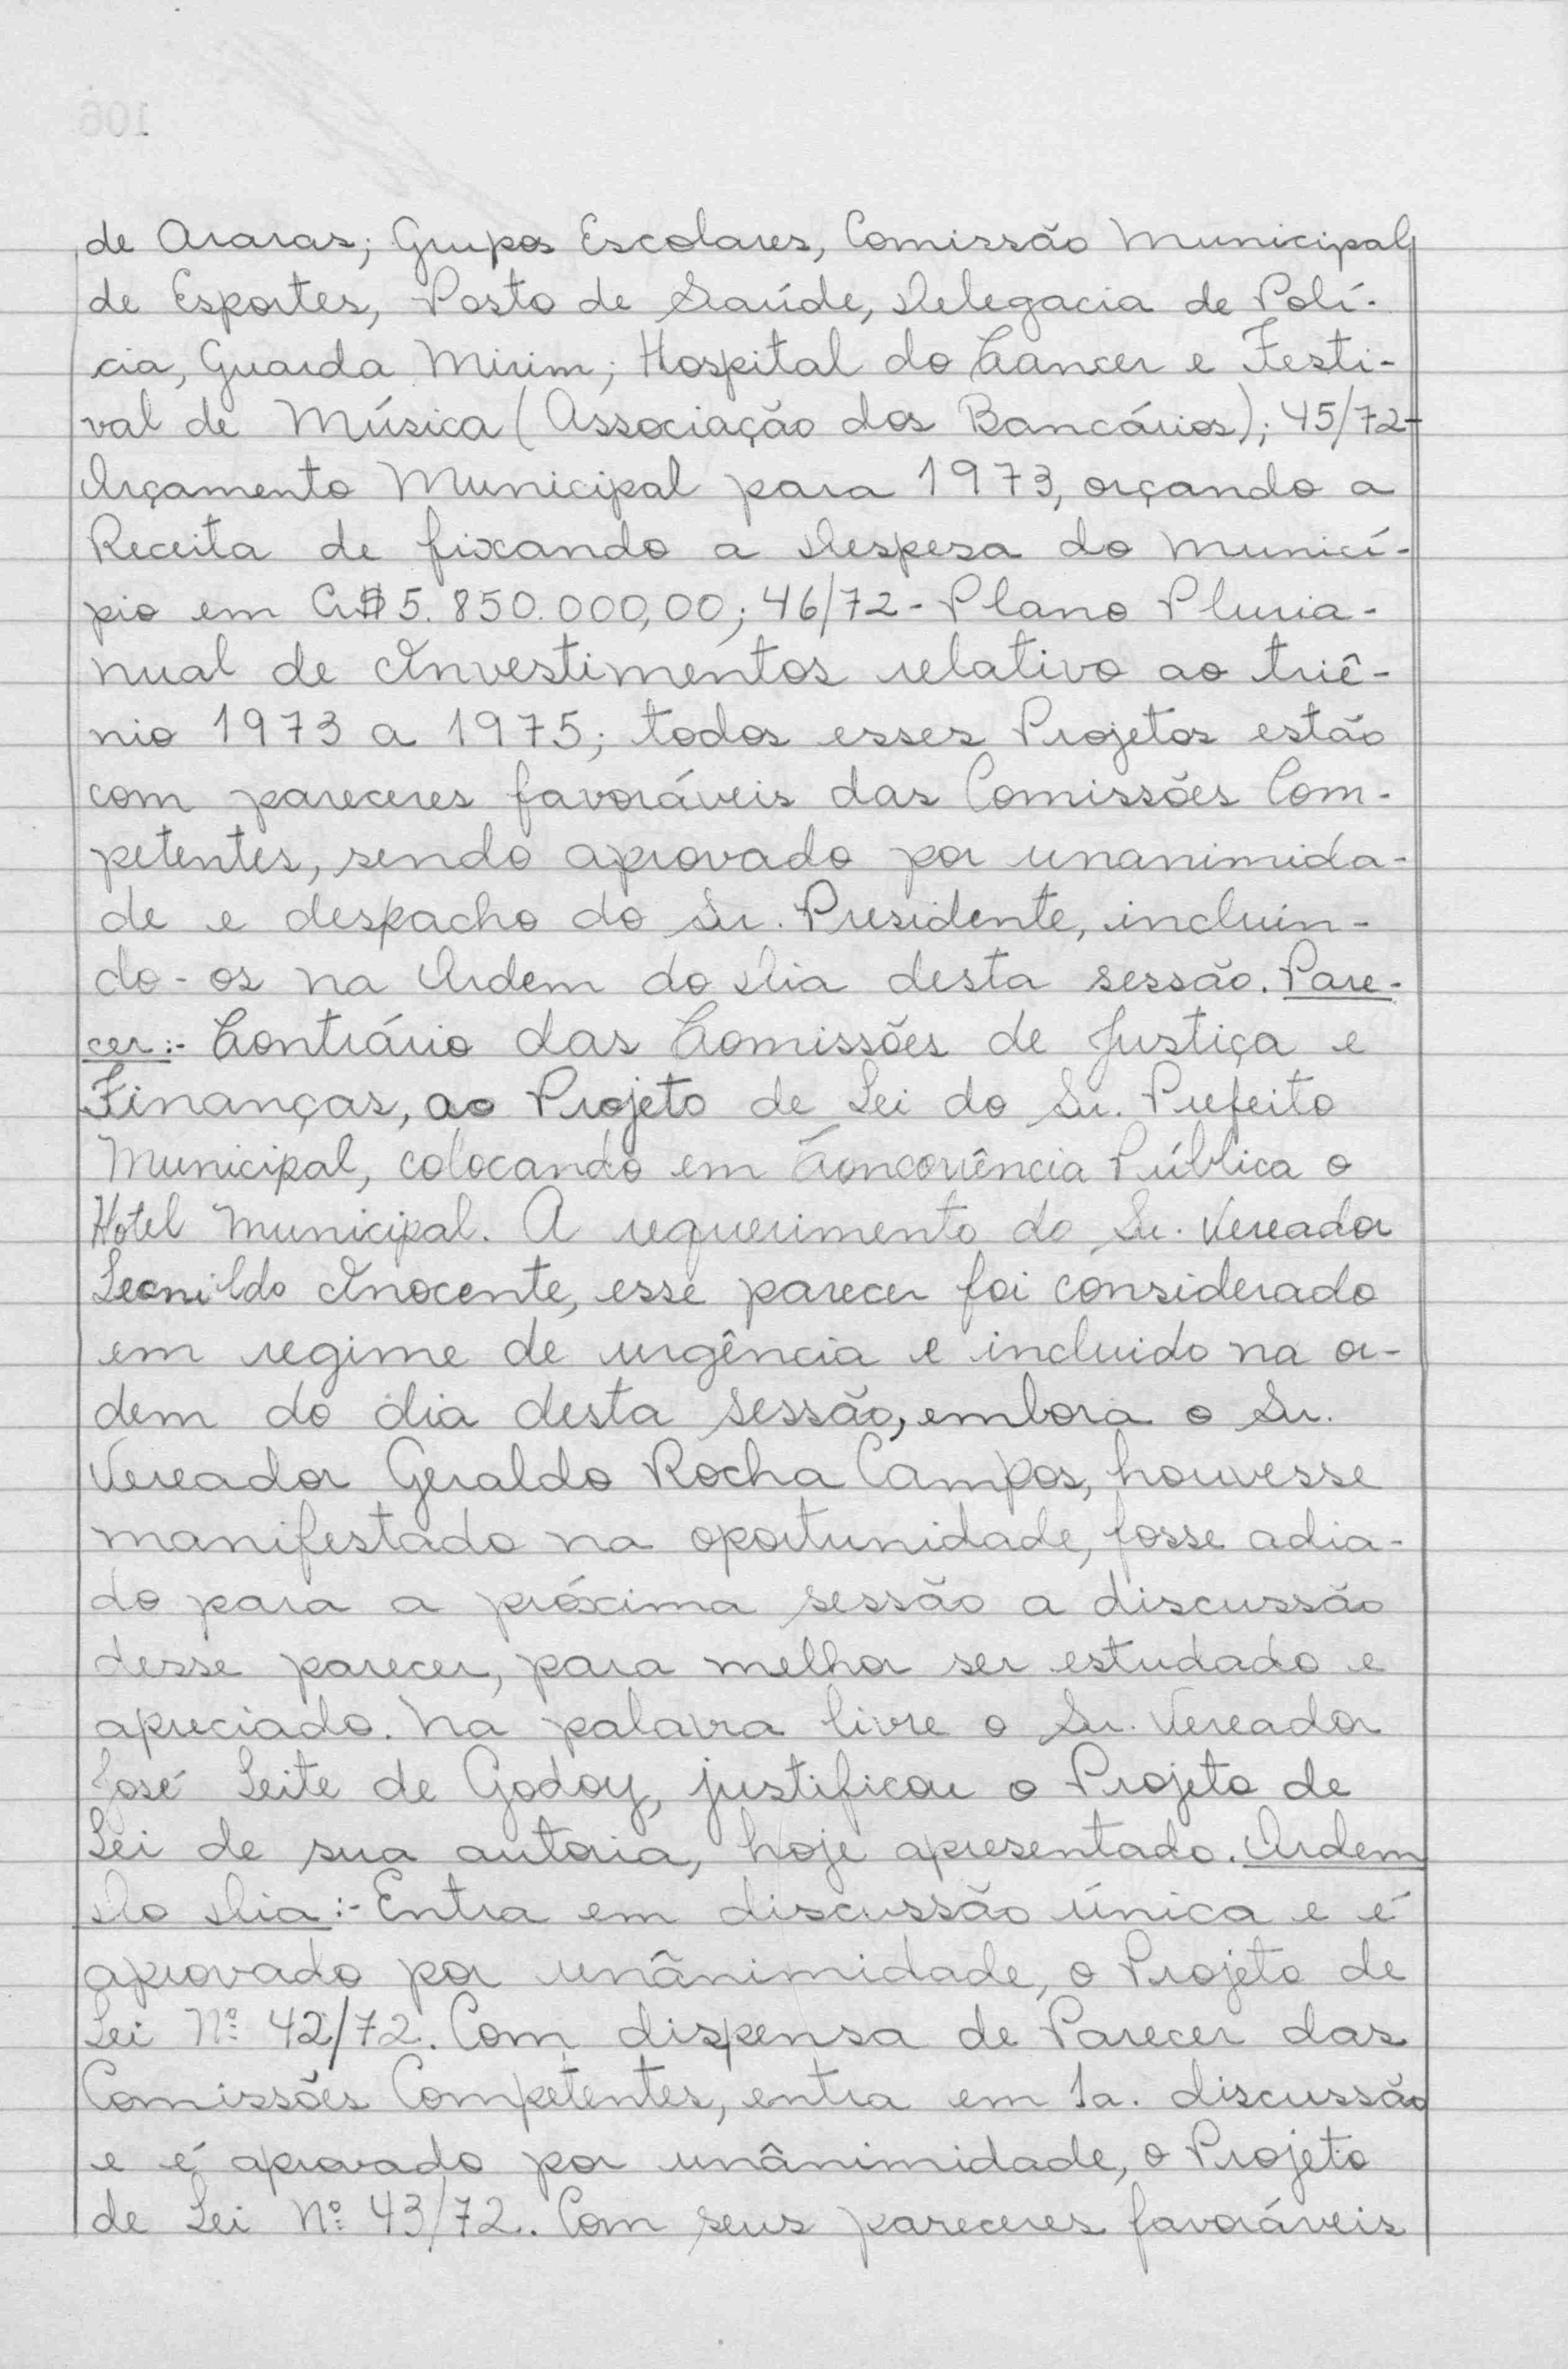 de Araras; Grupos Escolares, Comissão Municipal
de Esportes, Posto de Saúde, Delegacia de Polí-
cia, Guarda Mirim; Hospital do Cancer e Festi-
val de Música (Associação dos Bancários); 45/72-
Orçamento Municipal para 1973, orçando a
Receita de fixando a Despesa do Municí-
pio em Cr$ 5.850.000,00; 46/72 - Plano Pluria-
nual de Investimentos relativo ao triê-
nio 1973 a 1975; todos esses Projetos estão
com pareceres favoráveis das Comissões Com-
petentes, sendo aprovado por unanimida-
de e despacho do Sr. Presidente, incluin-
do-os na Ordem do Dia desta sessão. Pare-
cer:- Contrário das Comissões de Justiça e
Finanças, ao Projeto de Lei do Sr. Prefeito
Municipal, colocando em Concorrência Pública o
Hotel Municipal. A requerimento do Sr. Vereador
Leonildo Inocente, esse parecer foi considerado
em regime de urgência e incluido na or-
dem do dia desta Sessão, embora o Sr.
Vereador Geraldo Rocha Campos, houvesse
manifestado na oportunidade, fosse adia-
do para a próxima sessão a discussão
desse parecer, para melhor ser estudado e
apreciado. Na palavra livre o Sr. Vereador
José Leite de Godoy, justificou o Projeto de
Lei de sua autoria, hoje apresentado. Ordem
Do Dia:- Entra em discussão única e é
aprovado por unânimidade, o Projeto de
Lei Nº 42/72. Com dispensa de Parecer das
Comissões Competentes, entra em 1a. discussão
e é aprovado por unânimidade, o Projeto
de Lei Nº 43/72. Com seus pareceres favoráveis